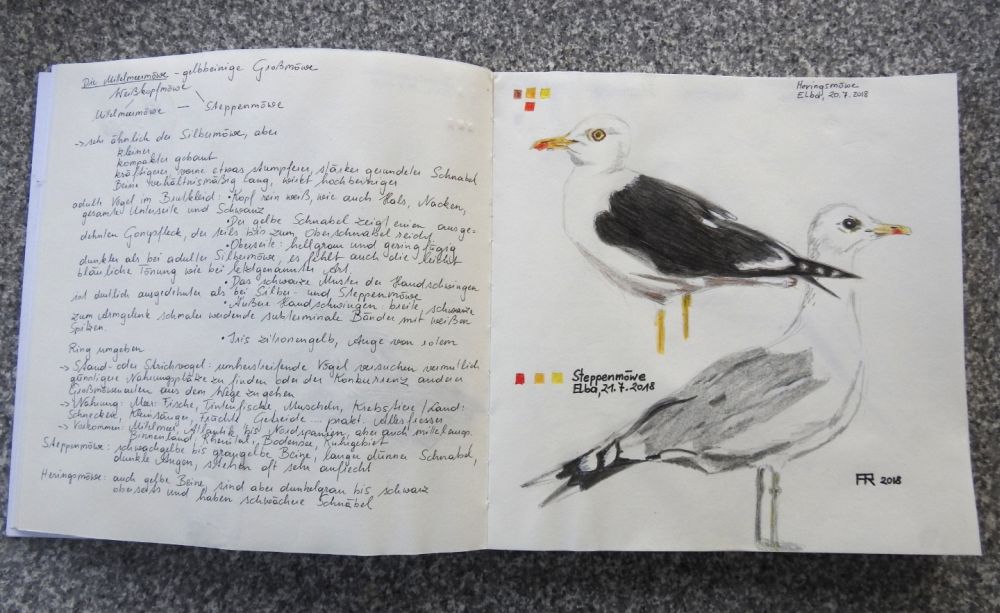 Die Mittelmeermöwe - gelbbeinige Großmöwe
Weißkopfmöwe
Mittelmeermöwe — Steppenmöwe
→ sehr ähnlich der Silbermöwe, aber
kleiner,
kompakter gebaut
kräftigerer, vorne etwas stumpferer, stärker gerundeter Schnabel
Beine verhältnismäßig lang, wirkt hochbeiniger
adulte Vögel im Brutkleid: • Kopf rein weiß, wie auch Hals, Nacken,
gesamte Unterseite und Schwanz
• Der gelbe Schnabel zeigt einen ausge-
dehnten Gonysfleck, der teils bis zum Oberschnabel reicht
• Oberseite: hellgrau und geringfügig
dunkler als bei adulter Silbermöwe, es fehlt auch die leicht
bläuliche Tönung wie bei letztgenannter Art.
• Das schwarze Muster der Handschwingen
ist deutlich ausgedehnter als bei Silber- und Steppenmöwe
• Äußere Handschwingen breite, schwarze
zum Armgelenk schmaler werdende subterminale Bänder mit weißen
Spitzen.
• Iris zitronengelb, Auge von rotem
Ring umgeben
→ Stand- oder Strichvogel: umherstreifende Vögel versuchen vermutlich
günstigere Nahrungsplätze zu finden oder der Konkurrenz anderer
Großmöwenarten aus dem Wege zu gehen
→ Nahrung: Meer: Fische, Tintenfische, Muscheln, Krebstiere / Land:
Schnecken, Kleinsäuger, Früchte, Getreide ... prakt. Allesfresser
→ Vorkommen: Mittelmeer, Atlantik bis Nordspanien, aber auch mitteleurop.
Binnenland, Rheintal, Bodensee, Ruhrgebiet
Steppenmöwe: schwachgelbe bis graugelbe Beine, langer dünner Schnabel,
dunkle Augen, stehen oft sehr aufrecht
Heringsmöwe: auch gelbe Beine, sind aber dunkelgrau bis schwarz
oberseits und haben schwächere Schnäbel
Heringsmöwe
Elba, 20.7.2018
Steppenmöwe
Elba, 21.7.2018
AR 2018